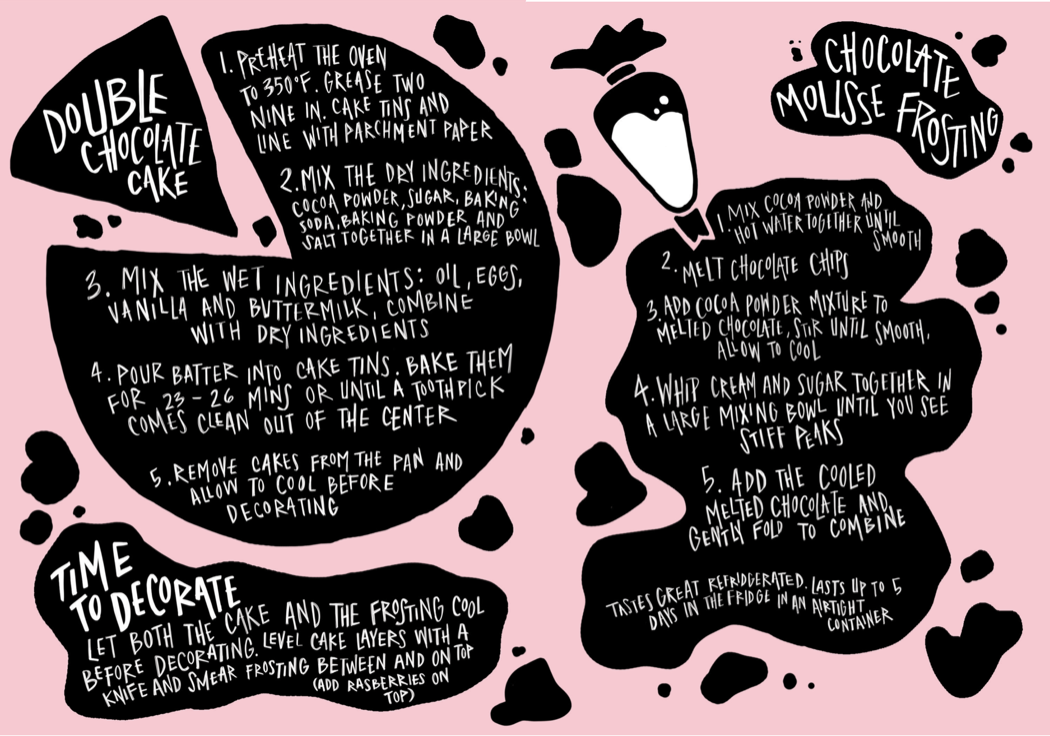 DOUBLE
CHOCOLATE
CAKE
1. PREHEAT THE OVEN
TO 350°F. GREASE TWO
NINE IN. CAKE TINS AND
LINE WITH PARCHMENT PAPER
2. MIX THE DRY INGREDIENTS:
COCOA POWDER, SUGAR, BAKING
SODA, BAKING POWDER AND
SALT TOGETHER IN A LARGE BOWL
3. MIX THE WET INGREDIENTS: OIL, EGGS,
VANILLA AND BUTTERMILK, COMBINE
WITH DRY INGREDIENTS
4. POUR BATTER INTO CAKE TINS. BAKE THEM
FOR 23-26 MINS OR UNTIL A TOOTHPICK
COMES CLEAN OUT OF THE CENTER
5. REMOVE CAKES FROM THE PAN AND
ALLOW TO COOL BEFORE
DECORATING
TIME
TO DECORATE
LET BOTH THE CAKE AND THE FROSTING COOL
BEFORE DECORATING. LEVEL CAKE LAYERS WITH A
KNIFE AND SMEAR FROSTING BETWEEN AND ON TOP
(ADD RASBERRIES ON
TOP)
CHOCOLATE
MOUSSE FROSTING
1. MIX COCOA POWDER AND
HOT WATER TOGETHER UNTIL
SMOOTH
2. MELT CHOCOLATE CHIPS
3. ADD COCOA POWDER MIXTURE TO
MELTED CHOCOLATE, STIR UNTIL SMOOTH,
ALLOW TO COOL
4. WHIP CREAM AND SUGAR TOGETHER IN
A LARGE MIXING BOWL UNTIL YOU SEE
STIFF PEAKS
5. ADD THE COOLED
MELTED CHOCOLATE AND
GENTLY FOLD TO COMBINE
TASTES GREAT REFRIDGERATED. LASTS UP TO 5
DAYS IN THE FRIDGE IN AN AIRTIGHT
CONTAINER